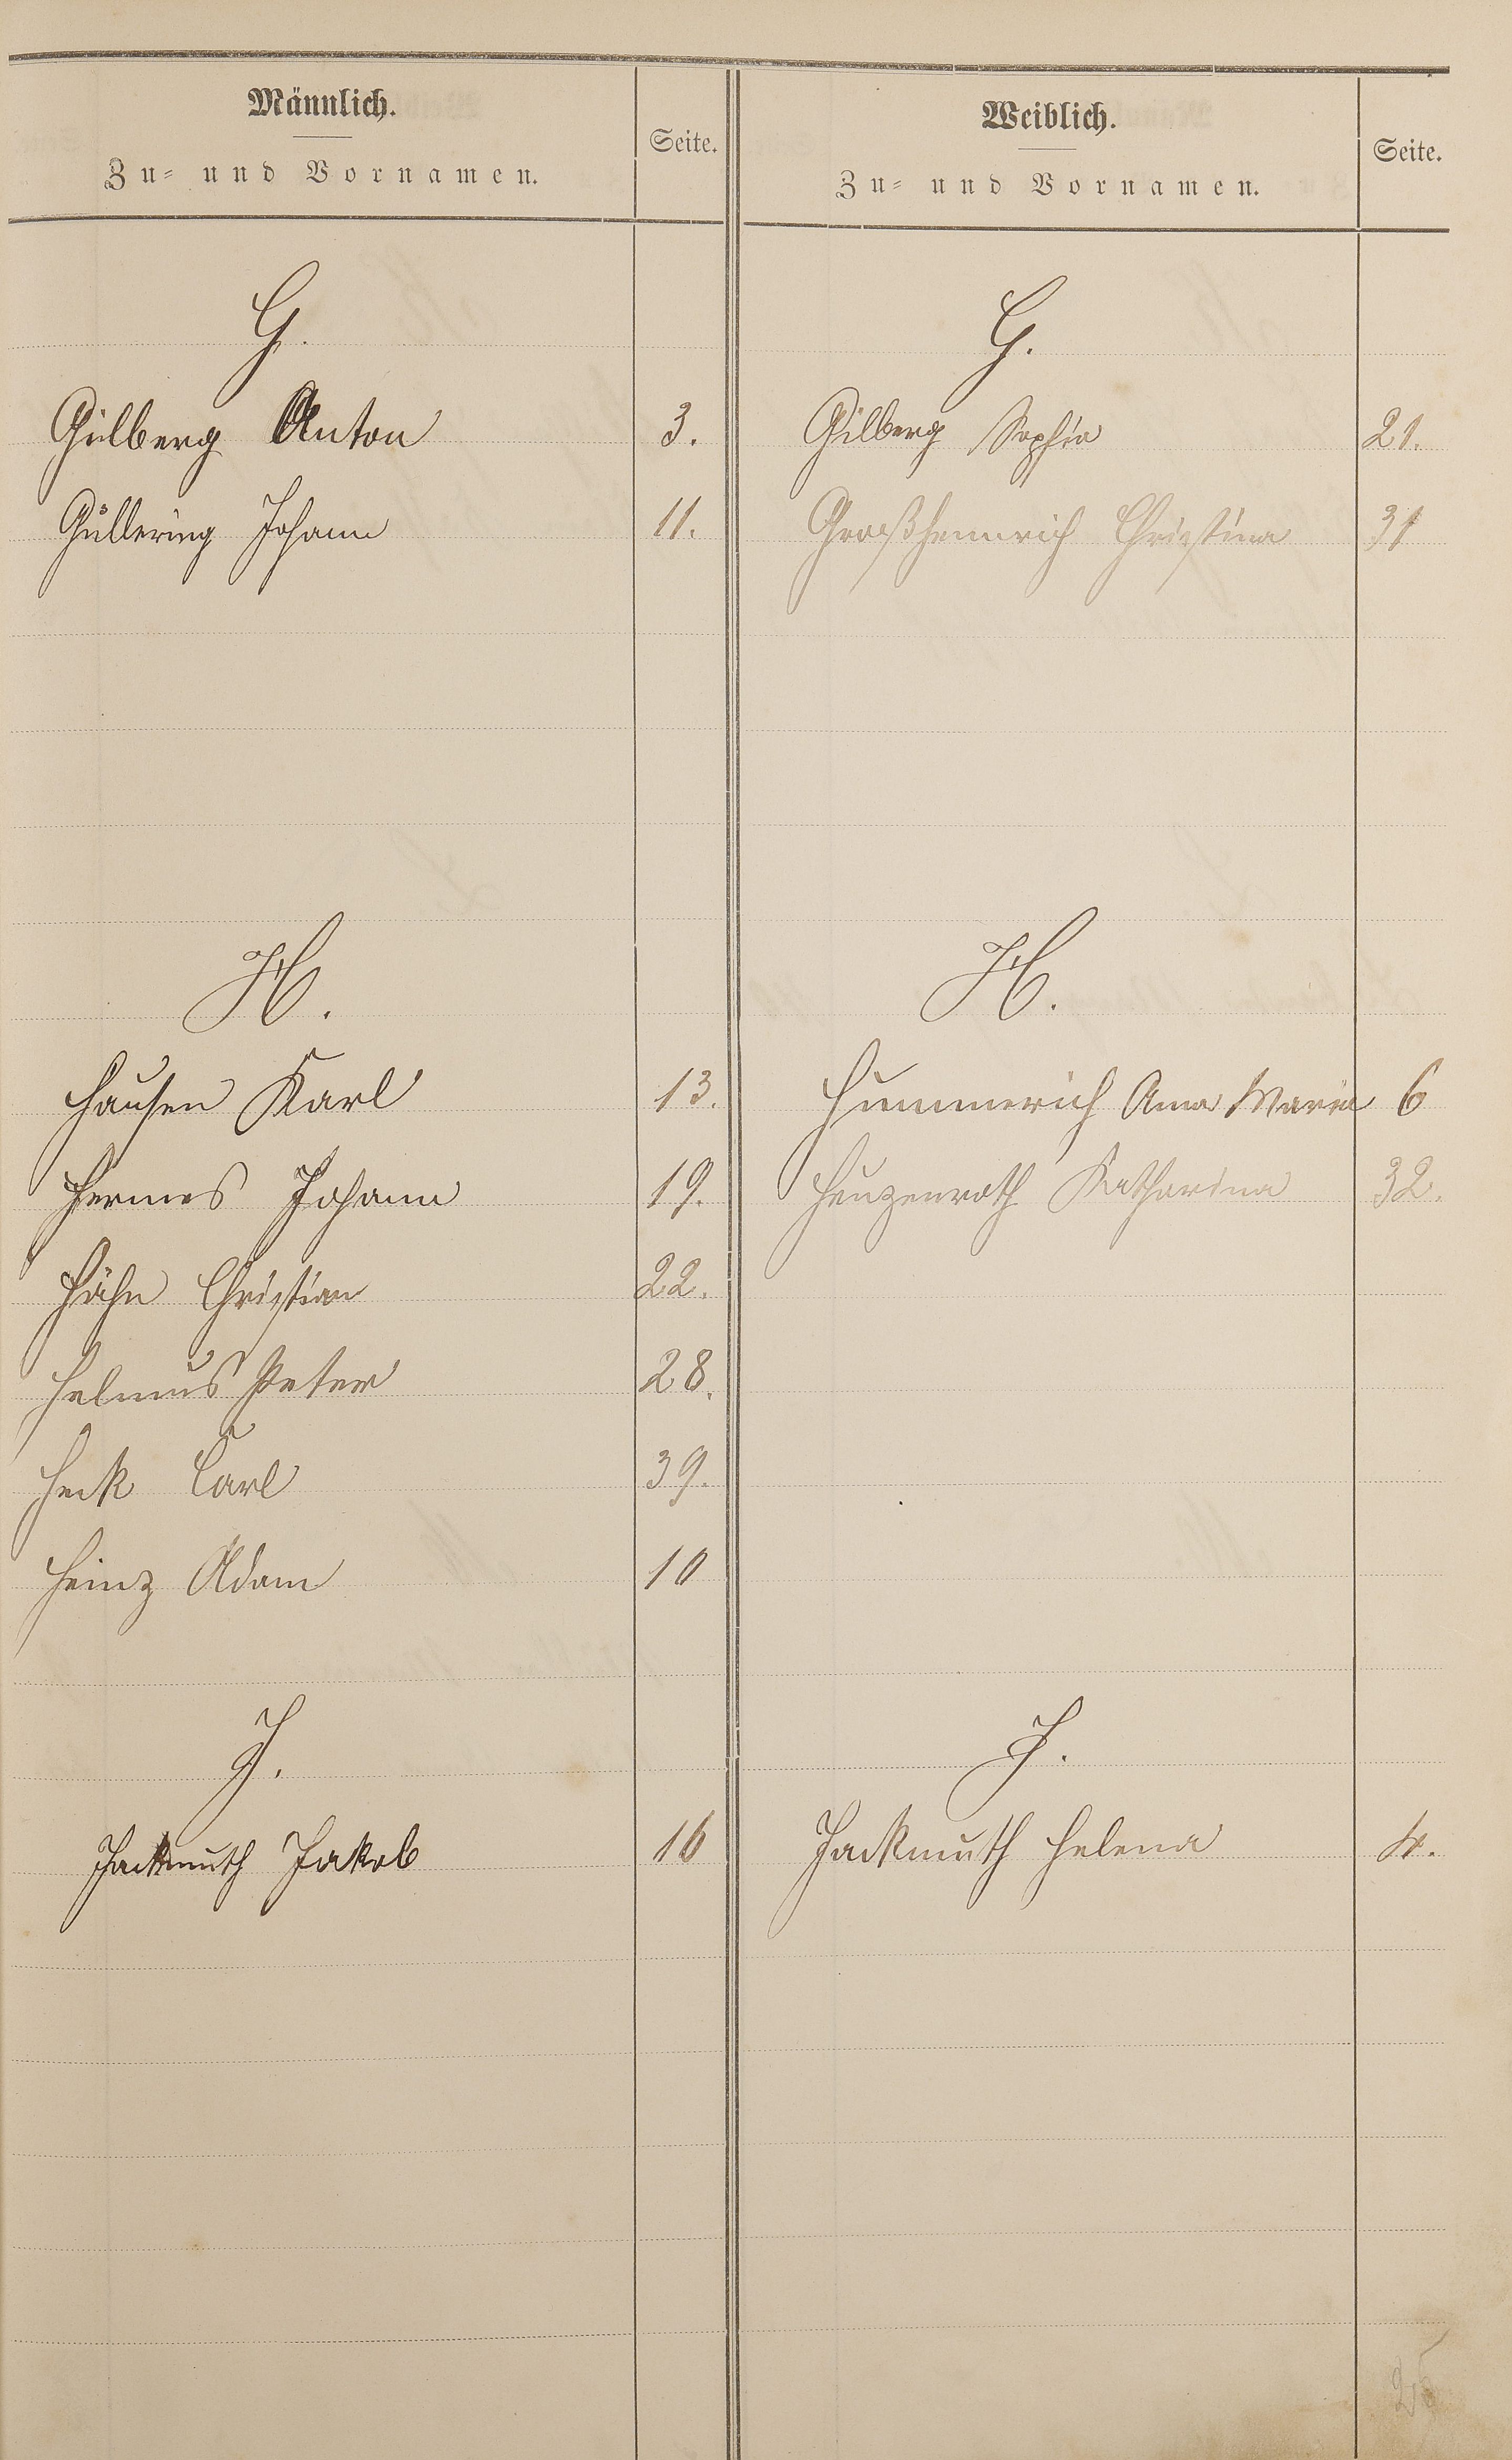 Männlich.
Zu- und Vornamen.
Seite.
G.
Gilberg Anton 3.
Güllering Johann 11.
H.
Hausen Karl 13.
Hermes Johann 19.
Hähn Christian 22.
Helmus Peter 28.
Heck Carl 39.
Heinz Adam 10
J.
Jackmuth Jakob 16
Weiblich.
Zu- und Vornamen.
Seite.
G.
Gilberg Sophia 21.
Großhennrich Christina 31
H.
Hummerich Anna Maria 6
Heuzenroth Katharina 32.
J.
Jackmuth Helena 4.
25